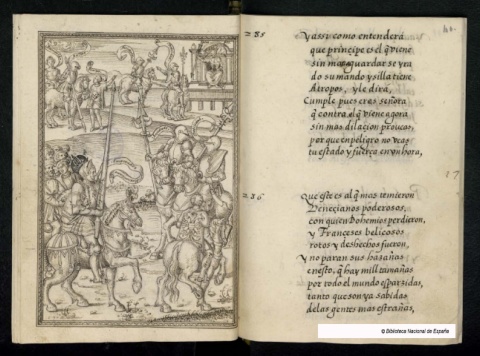 285
Y assi como entendera
que principe es el q̃ viene
sin mas guardar se yra
do su mando y silla tiene
Atropos, y le dira,
Cumple pues eres señora
q̃ contra el q̃ viene agora
sin mas dilaçion proueas,
porque en peligro no veas
tu estado y fuerça en vn hora,
286
Que este es al q̃ mas temieron
Veneçianos poderosos,
con quien Bohemios perdieron,
y Françeses belicosos
rotos y deshechos fueron,
Y no paran sus hazañas
en esto, q̃ hay mill tamañas
por todo el mundo esparzidas,
tanto que son ya sabidas
de las gentes mas estrañas,
© Biblioteca Nacional de España